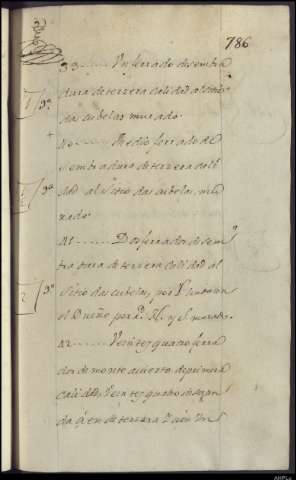 786
39...... Un ferrado de sembra
dura de tercera calidad al sitio
das cubelas murado.
40...... Medio ferrado de
sembradura de tercera cali
dad al sitio das cubelas, mu
rado.
41...... Dos ferrados de sem
bradura de tercera calidad al
sitio das cubelas, por
el Dueño y el murado
42...... Veinte y quatro ferra
dos de monte avierto de primera
calidad, Veinte y quatro de segun
da y en de tercera
1
3ª
3ª
2
3ª
AHPLu